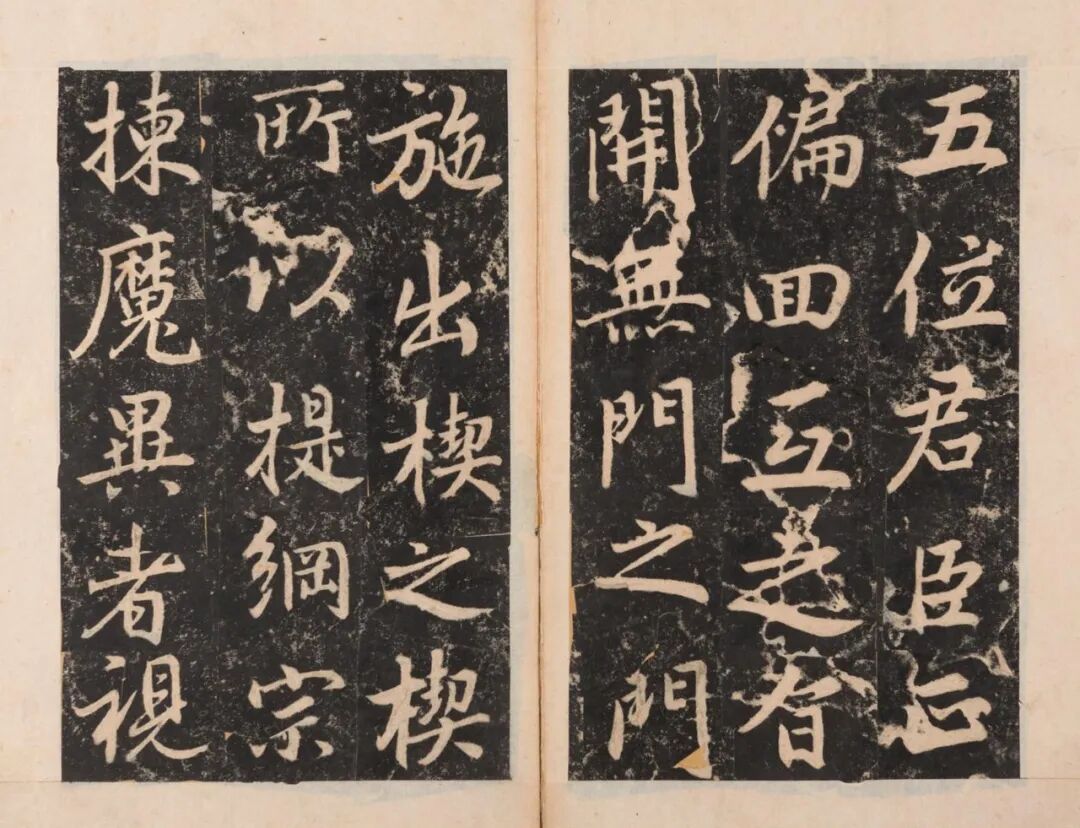 五位君臣正
偏回互是皆
開無門之門
施出楔之楔
所以提綱宗
揀魔異者視